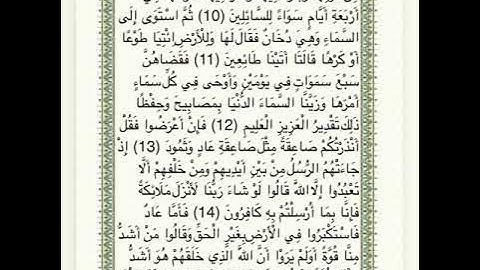 أَرْبَعَةِ أَيَّامٍ سَوَاءً لِلسَّائِلِينَ (10) ثُمَّ اسْتَوَى إِلَى
السَّمَاءِ وَهِيَ دُخَانٌ فَقَالَ لَهَا وَلِلْأَرْضِ ائْتِيَا طَوْعًا
أَوْ كَرْهًا قَالَتَا أَتَيْنَا طَائِعِينَ (11) فَقَضَاهُنَّ
سَبْعَ سَمَوَاتٍ فِي يَوْمَيْنِ وَأَوْحَى فِي كُلِّ سَمَاءٍ
أَمْرَهَا وَزَيَّنَّا السَّمَاءَ الدُّنْيَا بِمَصَابِيحَ وَحِفْظًا
ذَلِكَ تَقْدِيرُ الْعَزِيزِ الْعَلِيمِ (12) فَإِنْ أَعْرَضُوا فَقُلْ
أَنْذَرْتُكُمْ صَاعِقَةً مِثْلَ صَاعِقَةِ عَادٍ وَثَمُودَ (13) إِذْ
جَاءَتْهُمُ الرُّسُلُ مِنْ بَيْنِ أَيْدِيهِمْ وَمِنْ خَلْفِهِمْ أَلَّا
تَعْبُدُوا إِلَّا اللَّهَ قَالُوا لَوْ شَاءَ رَبُّنَا لَأَنْزَلَ مَلَائِكَةً
فَإِنَّا بِمَا أُرْسِلْتُمْ بِهِ كَافِرُونَ (14) فَأَمَّا عَادٌ
فَاسْتَكْبَرُوا فِي الْأَرْضِ بِغَيْرِ الْحَقِّ وَقَالُوا مَنْ أَشَدُّ
مِنَّا قُوَّةً أَوَلَمْ يَرَوْا أَنَّ اللَّهَ الَّذِي خَلَقَهُمْ هُوَ أَشَدُّ